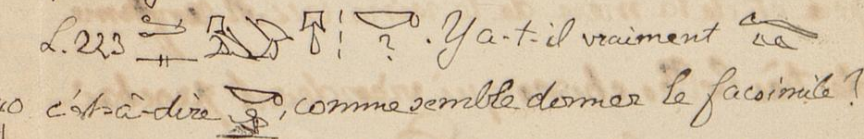 L. 223 ? . Y a-t-il vraiment
c'est-à-dire , comme semble donner le facsimile ?